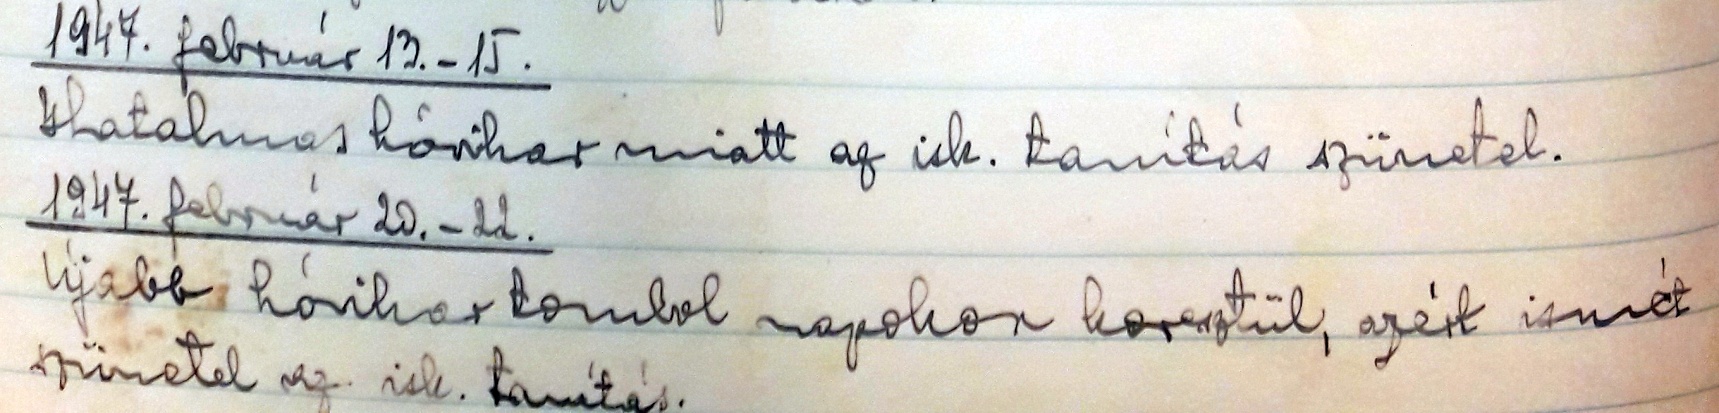 1947. február 13.-15.
Hatalmas hóvihar miatt az isk. tanítás szünetel.
1947. február 20.-22.
Újabb hóvihar tombol napokon keresztül, azért ismét
szünetel az isk. tanítás.